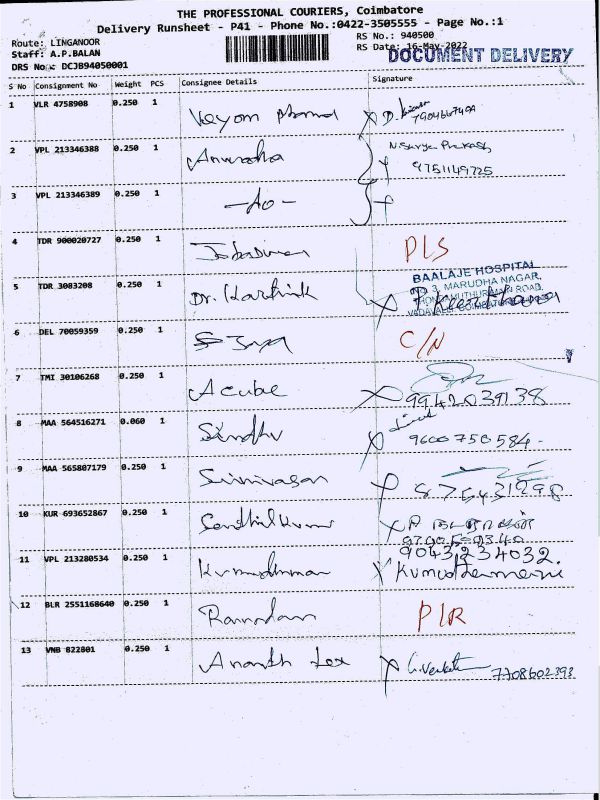 THE PROFESSIONAL COURIERS, Coimbatore
Delivery Runsheet - P41 - Phone No.:0422-3505555 - Page No.:1
Route: LINGANOOR RS No.: 940500
Staff: A.P.BALAN RS Date: 16-May-2022
DOCUMENT DELIVERY
DRS No: DCJB94050001
S No Consignment No Weight PCS Consignee Details Signature
1 VLR 4758908 0.250 1
2 VPL 213346388 0.250 1 Anuradha N Surya Prakash
9751149725
3 VPL 213346389 0.250 1 -do-
4 TDR 900020727 0.250 1 D/S
BAALAJE HOSPITAL
NO 3, MARUDHA NAGAR,
5 TDR 3083208 0.250 1 Dr. Karthik
6 DEL 70059359 0.250 1 C/N
7 TMI 30106268 0.250 1 Acube 9942039138
8 MAA 564516271 0.060 1 Sindhu 9600750584
9 MAA 565807179 0.250 1 Srinivasan
10 KUR 693652867 0.250 1 Senthilkumar
9043234032.
11 VPL 213280534 0.250 1
12 BLR 2551168640 0.250 1 P/R
13 VNB 822801 0.250 1 Ananth Tex G.Venkat 7708602393